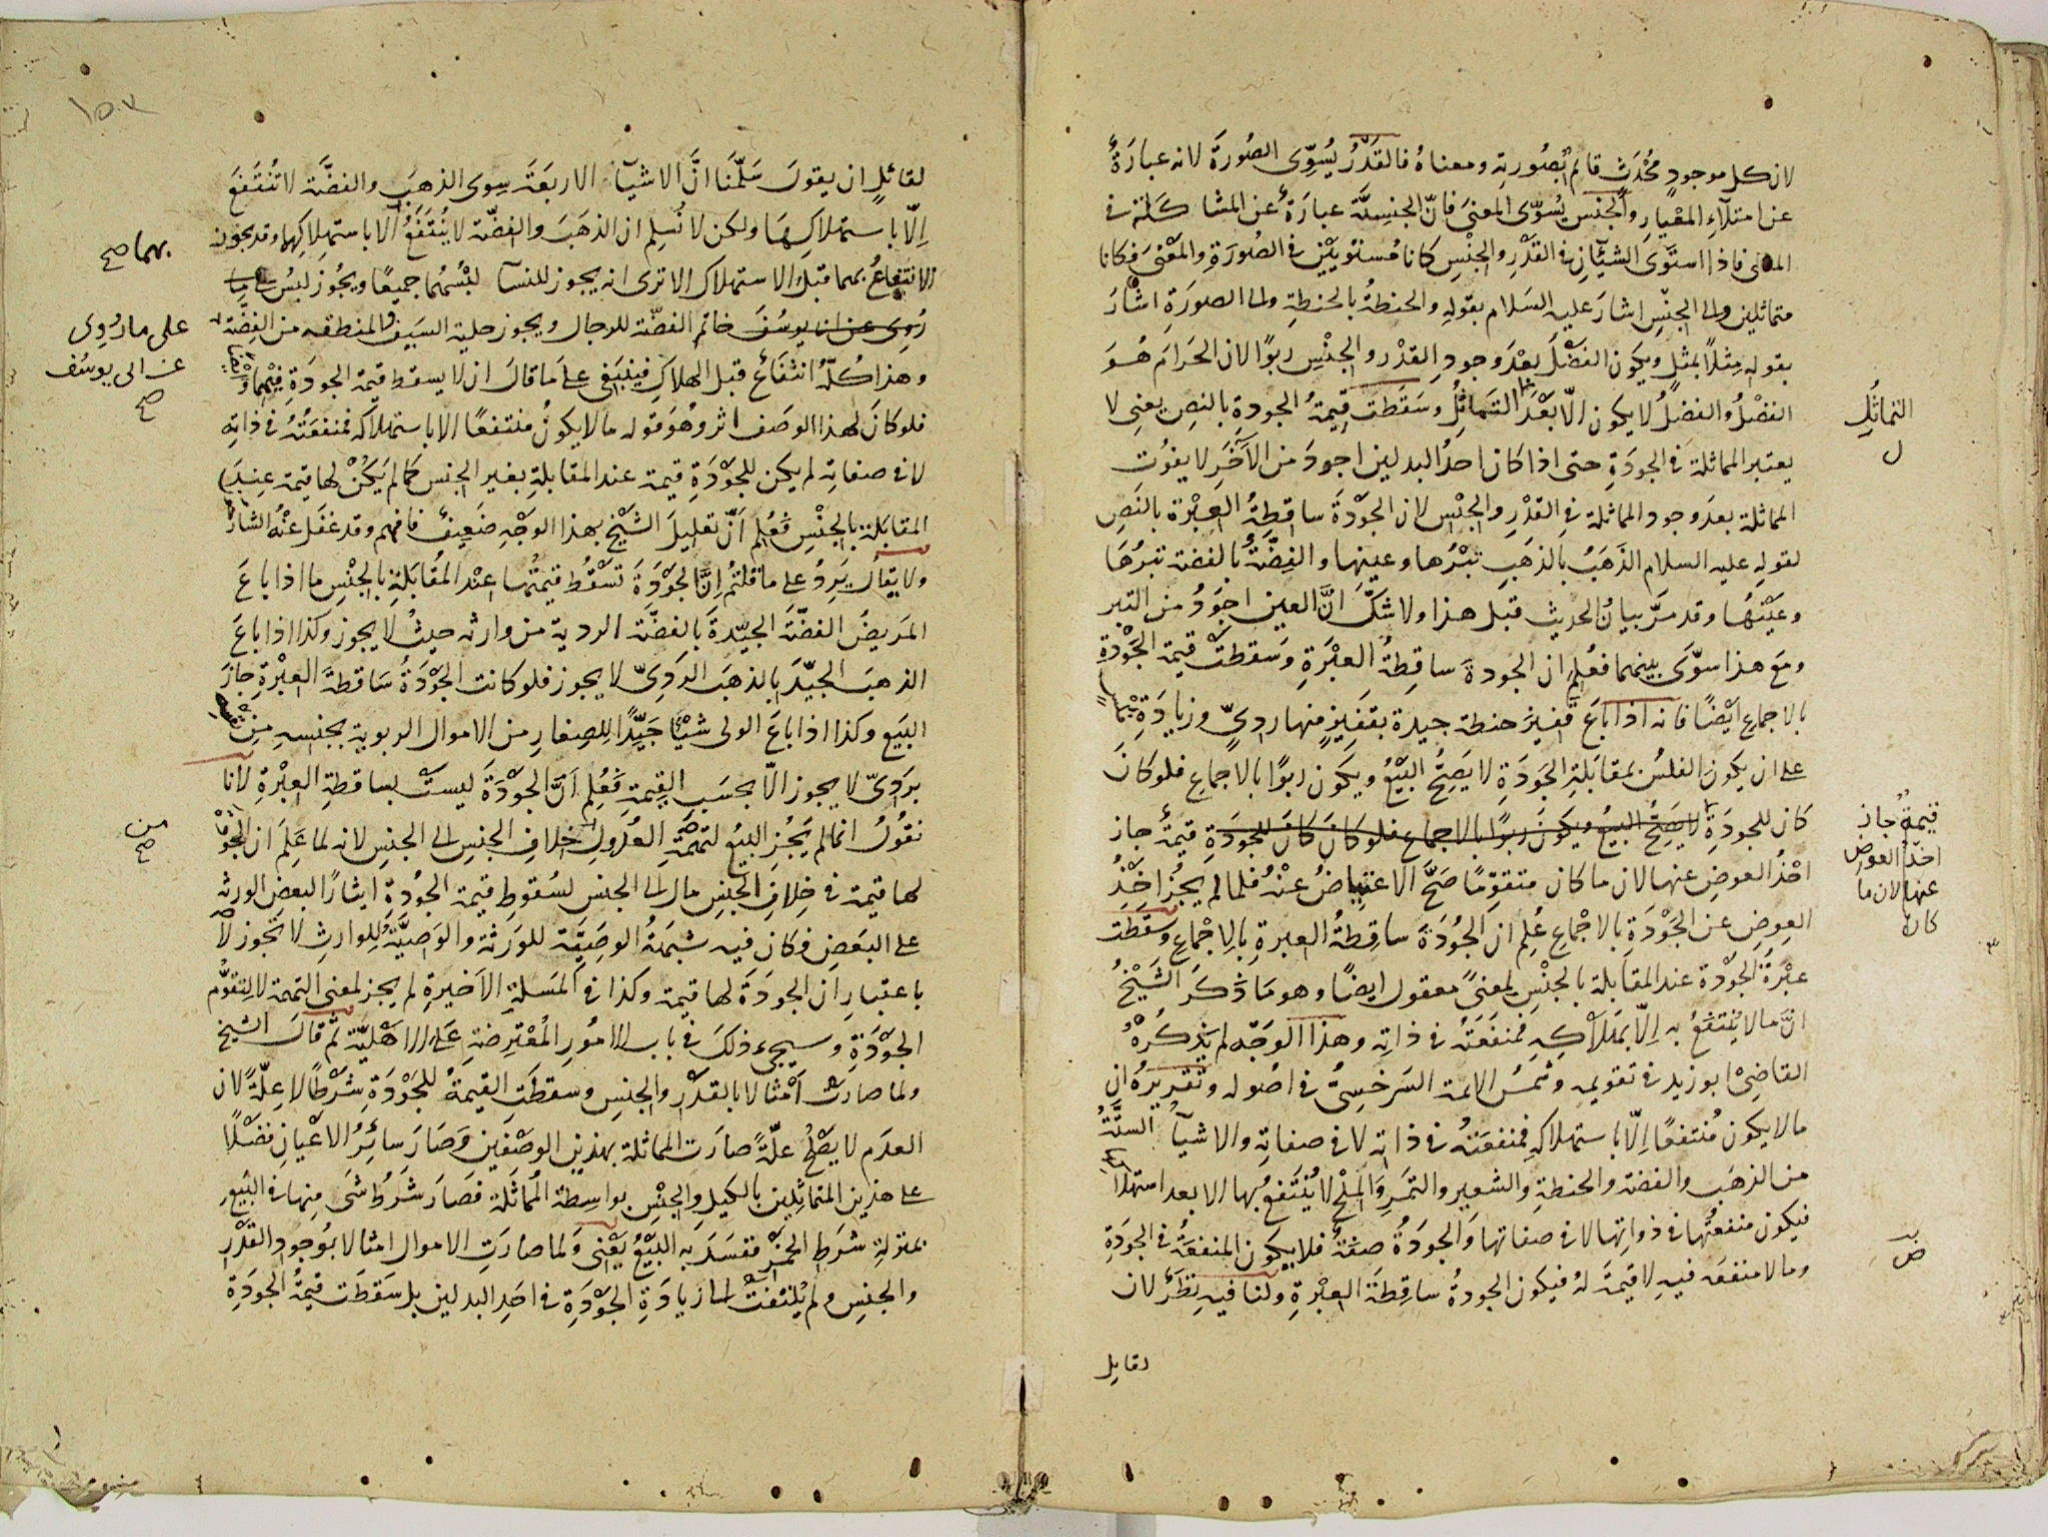 لان كل موجود محدث قائم بصورته ومعناه فالقدر يسوى الصورة لانه عبارة
عن امتلاء المعيار والجنس يسوى المعنى فان الجنسية عبارة عن المشاكلة في
المعنى فاذا استوى الشيئان في القدر والجنس كانا مستويين في الصورة والمعنى فكانا
متماثلين والى الجنس اشار عليه السلام بقوله والحنطة بالحنطة والى الصورة اشار
بقوله مثلا بمثل ويكون الفضل بعد وجود القدر والجنس ربوا لان الحرام هو
الفضل والفضل لا يكون الا بعد التماثل وسقطت قيمة الجودة بالنص يعنى لا
يعتبر المماثلة في الجودة حتى اذا كان احد البدلين اجود من الآخر لا يفوت
المماثلة بعد وجود المماثلة في القدر والجنس لان الجودة ساقطة العبرة بالنص
لقوله عليه السلام الذهب بالذهب تبرها وعينها والفضة بالفضة تبرها
وعينها وقد مر بيان الحديث قبل هذا ولا شك ان العين اجود من التبر
ومع هذا سوى بينهما فعلم ان الجودة ساقطة العبرة وسقطت قيمة الجودة
بالاجماع ايضا فانه اذا باع قفيز حنطة جيدة بقفيز منها ردى وزيادة
على ان يكون الفلس بمقابلة الجودة لا يصح البيع ويكون ربوا بالاجماع فلو كان
كان للجودة لا يصح البيع ويكون ربوا بالاجماع فلو كان كان للجودة قيمة جاز
اخذ العوض عنها لان ما كان متقوما صح الاعتياض عنه فلما لم يجز اخذ
العوض عن الجودة بالاجماع علم ان الجودة ساقطة العبرة بالاجماع وسقطت
عبرة الجودة عند المقابلة بالجنس لمعنى معقول ايضا وهو ما ذكر الشيخ
ان ما لا ينتفع به الا بهلاكه فمنفعته في ذاته وهذا الوجه لم يذكره
القاضى ابو زيد في تقويمه وشمس الائمة السرخسى في اصوله وتقريره ان
ما لا يكون منتفعا الا باستهلاكه فمنفعته في ذاته لا في صفاته والاشياء الستة
من الذهب والفضة والحنطة والشعير والتمر والملح لا ينتفع بها الا بعد استهلاكها
فيكون منفعتها في ذواتها لا في صفاتها والجودة صفة فلا يكون المنفعة في الجودة
وما لا منفعة فيه لا قيمة له فيكون الجودة ساقطة العبرة ولنا فيه نظر لان
لقايل
التماثل
ل
قيمة جاز
اخذ العوض
عنها لان ما
كان
لقائل ان يقول سلمنا ان الاشياء الاربعة سوى الذهب والفضة لا تنتفع
الا باستهلاكها ولكن لا نسلم ان الذهب والفضة لا ينتفع الا باستهلاكهما وقد يجوز
الانتفاع بهما قبل الاستهلاك الا ترى انه يجوز للنساء لبسهما جميعا ويجوز لبس على ما
روى عن ابى يوسف خاتم الفضة للرجال ويجوز حلية السيف والمنطقه من الفضة
وهذا كله انتفاع قبل الهلاك فينبغى على ما قال ان لا يسقط قيمة الجودة فيهما
فلو كان لهذا الوصف اثر وهو قوله ما لا يكون منتفعا الا باستهلاكه فمنفعته في ذاته
لا في صفاته لم يكن للجودة قيمة عند المقابلة بغير الجنس كما لم يكن لها قيمة عند
المقابلة بالجنس فعلم ان تعليل الشيخ بهذا الوجه ضعيف فافهم وقد غفل عنه الشارحون
ولا يقال يرد على ما قلتم ان الجودة تسقط قيمتها عند المقابلة بالجنس ما اذا باع
المريض الفضة الجيدة بالفضة الردية من وارثه حيث لا يجوز وكذا اذا باع
الذهب الجيد بالذهب الردى لا يجوز فلو كانت الجودة ساقطة العبرة جاز
البيع وكذا اذا باع الولى شيئا جيدا للصغار من الاموال الربوية بجنسه من نفسه
بردى لا يجوز الا بحسب القيمة فعلم ان الجودة ليست بساقطة العبرة لانا
نقول انما لم يجز البيع لتهمة العدول خلاف الجنس الى الجنس لانه لما علم ان الجودة
لها قيمة في خلاف الجنس مال الى الجنس لسقوط قيمة الجودة ايثارا لبعض الورثة
على البعض فكان فيه شبهة الوصية للورثة والوصية للوارث لا تجوز لا
باعتبار ان الجودة لها قيمة وكذا في المسلة الاخيرة لم يجز لمعنى التهمة لا لتقوم
الجودة وسيجىء ذلك في باب الامور المعترضة على الاهلية ثم قال الشيخ
ولما صارت امثالا بالقدر والجنس وسقطت القيمة للجودة شرطا لا علة لان
العدم لا يصلح علة صارت المماثلة بهذين الوصفين وصار سائر الاعيان فضلا
على هذين المتماثلين بالكيل والجنس بواسطة المماثلة فصار شرط شى منها في البيع
بمنزلة شرط الخمر ففسد به البيع يعنى ولما صارت الاموال امثالا بوجود القدر
والجنس ولم يلتفت الى زيادة الجودة في احد البدلين بل سقطت قيمة الجودة
بهما صح
على ما روى
عن ابى يوسف
صح
من
صح